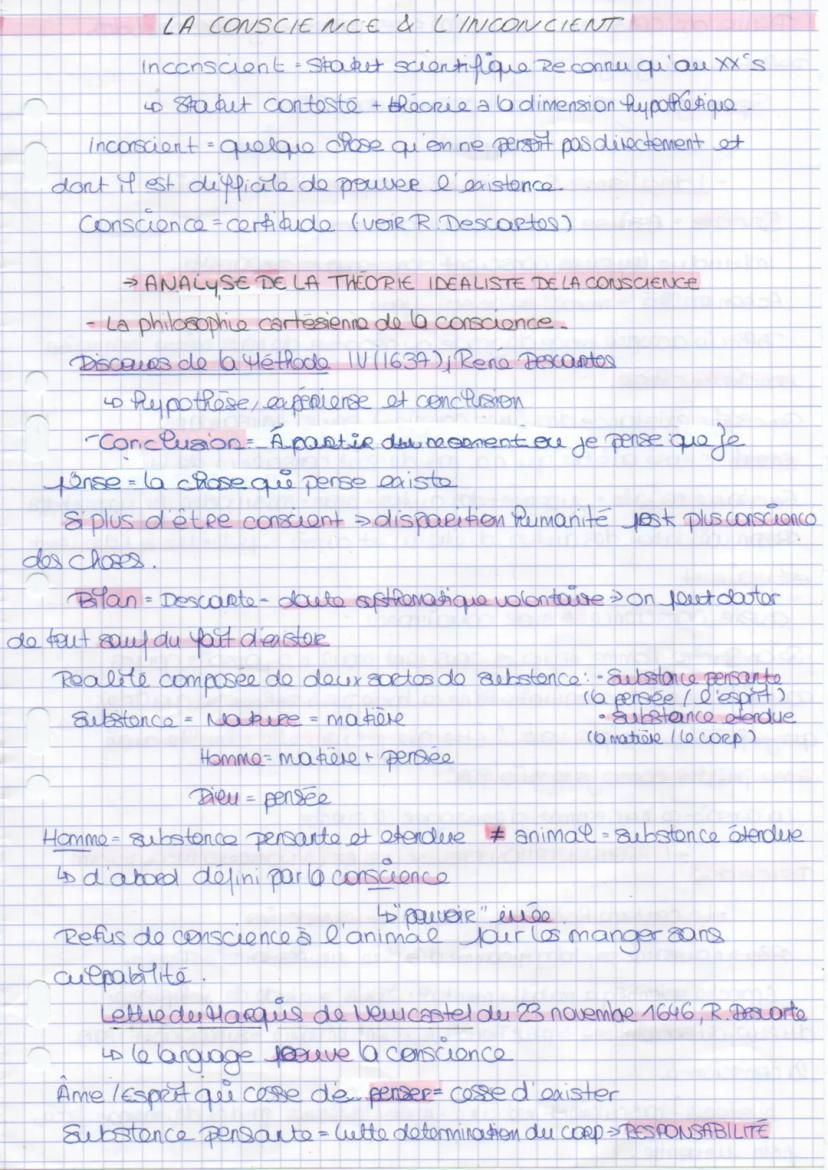 LA CONSCIENCE & L'INCONCIENT
Inconscient = Statut scientifique reconnu qu'au XX°s
↳ Statut contesté + théorie a la dimension hypothétique.
inconscient = quelque chose qu'on ne persoit pas directement et
dont il est difficile de prouver l'existence.
Conscience = certitude (voir R. Descartes)
→ ANALYSE DE LA THÉORIE IDEALISTE DE LA CONSCIENCE
- La philosophie cartésienne de la conscience.
Discours de la Méthode IV (1637), René Descartes
↳ hypothèse, expérience et conclusion
- Conclusion = À partir du moment ou je pense que je
pense = la chose qui pense existe
Si plus d'être conscient => disparition humanité plus conscience
des choses.
Bilan = Descarte - doute systhématique volontaire => on peut dater
de tout sauf du fait d'exister
Realité composée de deux sortes de substence : - Substance pensante
(la pensée / l'esprit)
Substence = Nature = matière
• Substance étendue
(la matière / le corp)
Homme = matière + pensée
Dieu = pensée
Homme = substence pensante et étendue ≠ animal = substence étendue
↳ d'abord défini par la conscience
↳ "pouvoir"
Refus de conscience à l'animal pour les manger sans
culpabilité.
Lettre du Marquis de Newcastel du 23 novembe 1646, R. Descarte
↳ le language prouve la conscience
Âme / Esprit qui cesse de penser = cesse d'exister
Substence pensante = lutte determination du corp => RESPONSABILITÉ